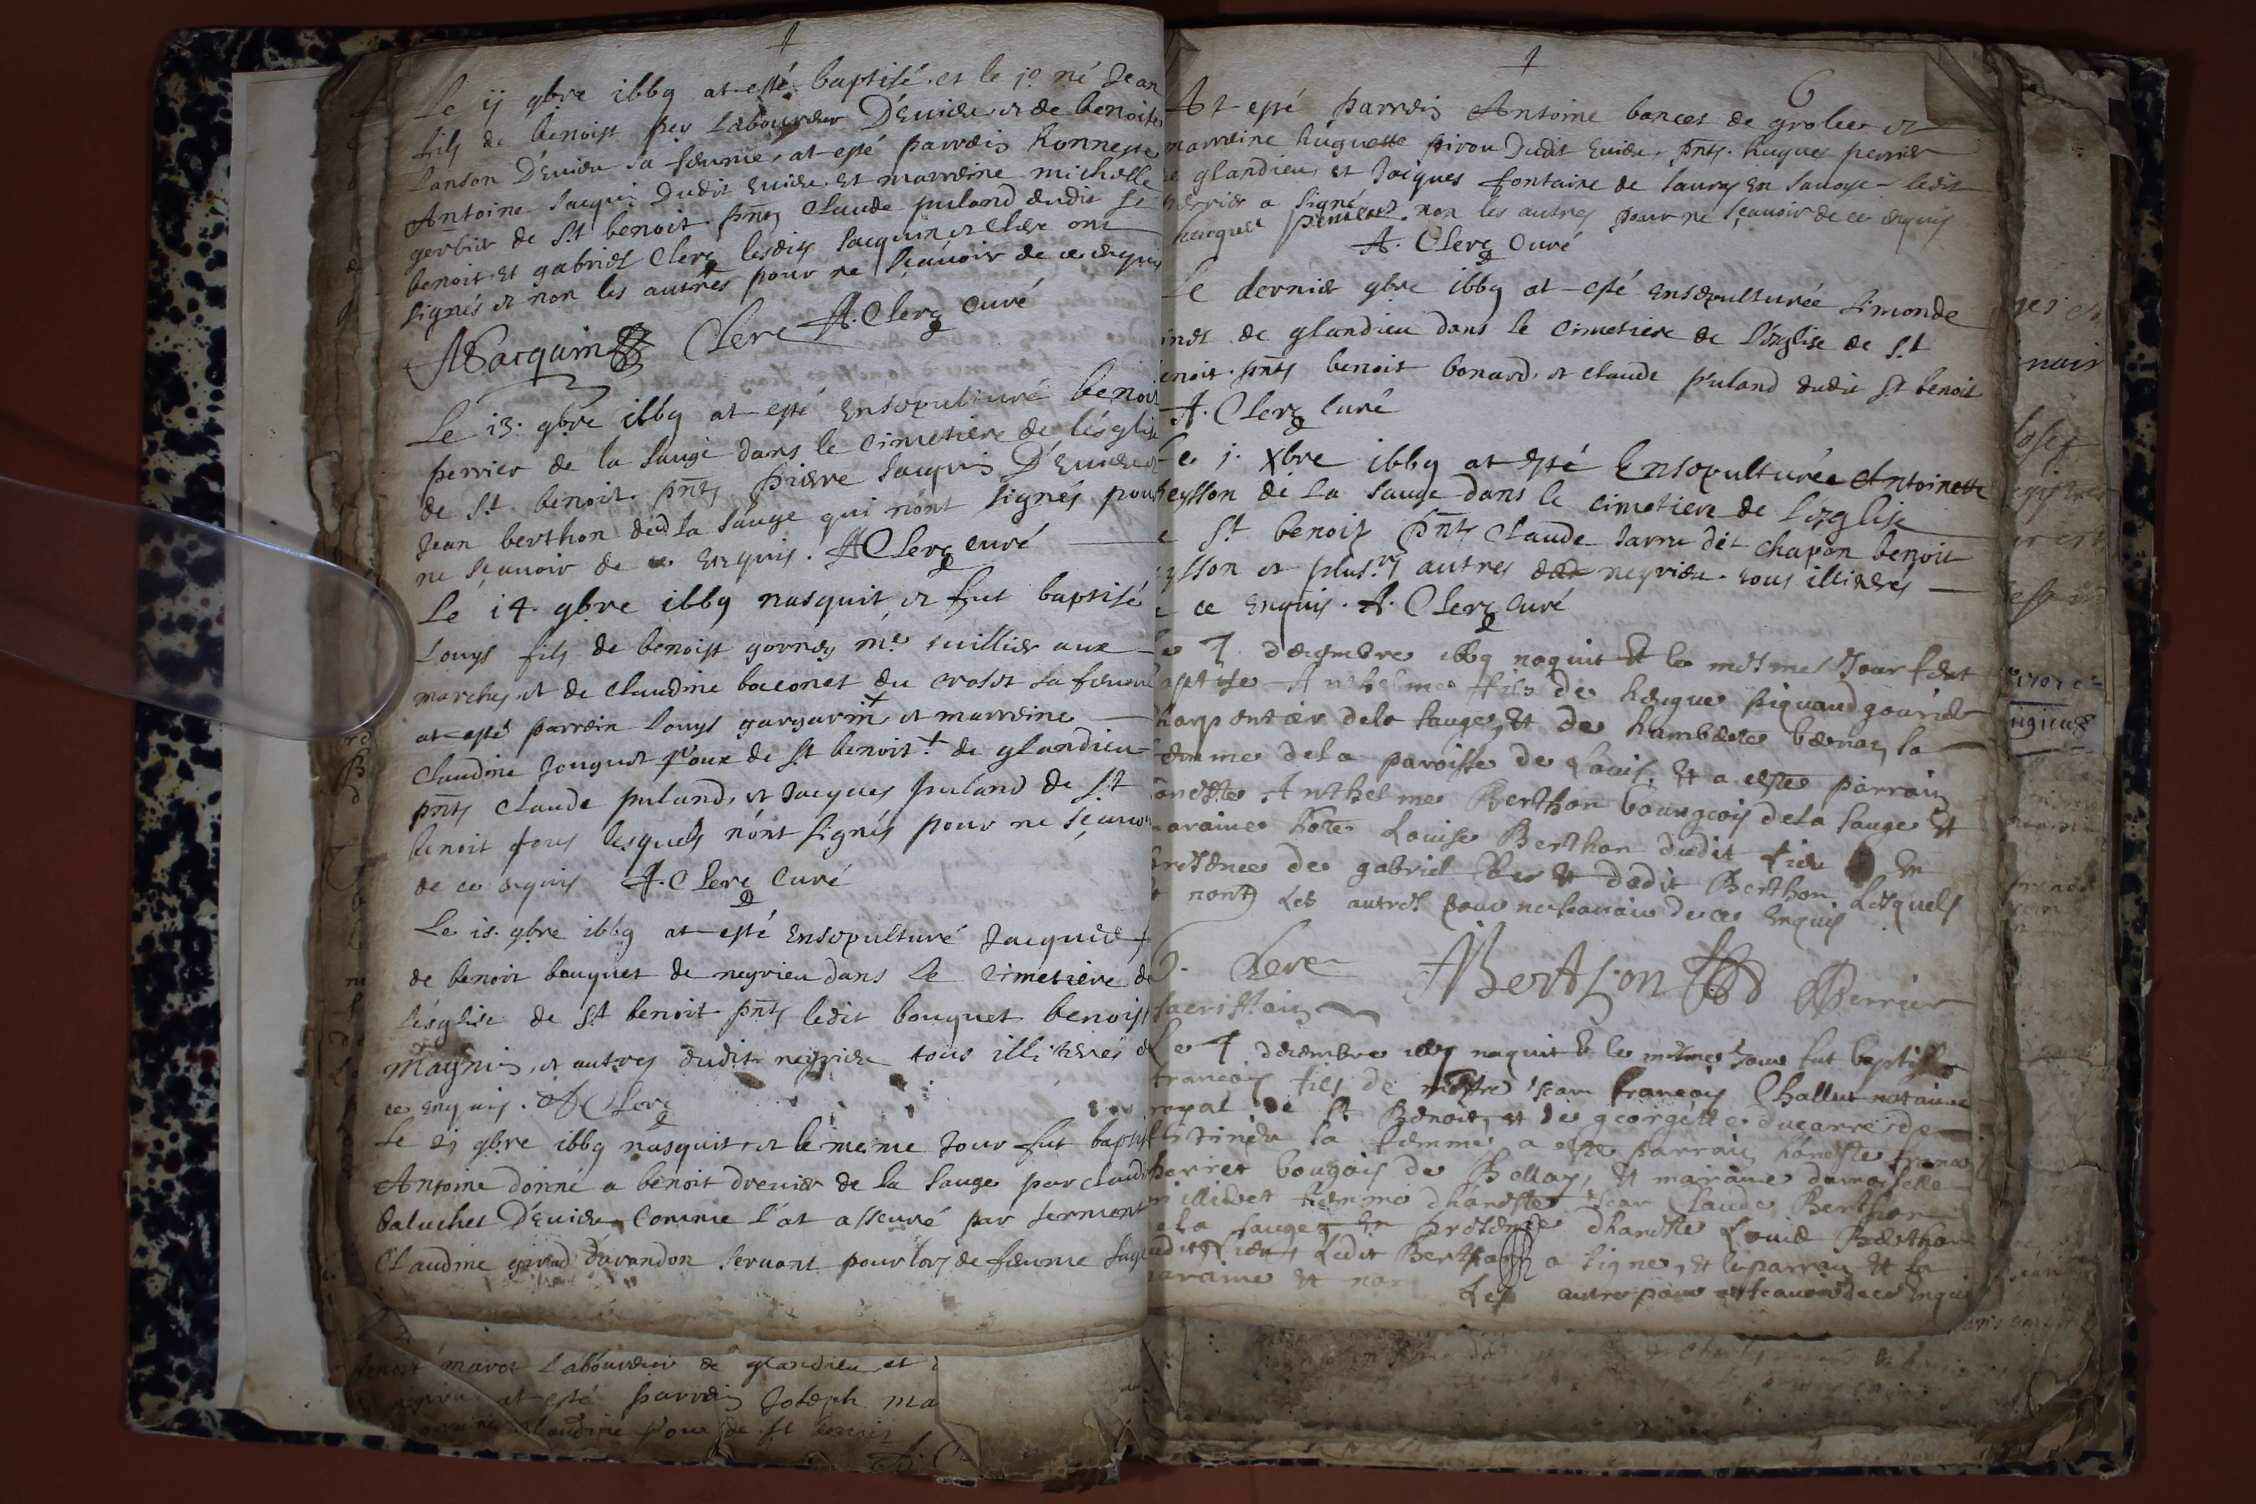 Le ij 9bre 1669 at esté baptisé et le 10 né Jean
fils de benoist pey Laboureur D'Evieu et de benoite
Lanson D'Evieu sa femme, at esté parrein honneste
Antoine Jacquin Dudit Evieu et marreine michelle
gerbier de St benoit pnts Claude puland dudit St
benoit et gabriel Clerc lesdits Jacquin et Clerc ont
signés et non les autres pour ne sçavoir de ce enquis
A Jacquin Clerc A. Clerc curé
Le 13. 9bre 1669 at esté Ensepulturé benoit
perrier de la sauge dans le cimetiere de l'ésglise
de St benoit pnts pierre Jacquin D'Evieu et
Jean berthon de la sauge qui n'ont signés pour
ne sçavoir de ce enquis. A Clerc curé
Le 14. 9bre 1669 nasquit et fut baptisé
Louys fils de benoist gorney me tuillier aux
marches et de Claudine baconet du crolet sa femme
at esté parrein Louys gargarin + et marreine
Claudine Jouguet poux de St benoit + de glandieu
pnts Claude puland, et Jacques puland de St
benoit tous lesquels n'ont signés pour ne sçavoir
de ce enquis A. Clerc curé
Le 15. 9bre 1669 at esté Ensepulturé Jacques f
de benoit bouquet de neyrieu dans le cimetiere de
l'ésglise de St benoit pnts ledit bouquet benoist
Magnin, et autres dudit neyrieu tous illiterés de
ce enquis. A Clerc
Le 21 9bre 1669 nasquit et le mesme jour fut baptisé
Antoine donné a benoit drevier de la sauge par claudine
baluchet D'Evieu comme l'at asseuré par serment
Claudine giroud d'arandon servant pour lors de femme sage
benoit marot Labboureur de glandieu et
at esté parrein Joseph ma
Claudine poux de St benoit
6
At esté parrein Antoine bances de grolee et
marreine huguette pirou Dudit Evieu, pnts. hugues perrier
de glandieu et Jacques fontaine de Lauvy En Savoye ledit
perrier a signé non les autres pour ne sçavoir de ce enquis
A. Clerc Curé
Le dernier 9bre 1669 at esté Ensepulturée simonde
de glandieu dans le Cimetiere de l'Ezglise de St
benoit. pnts benoit bonard, et claude puland dudit St benoit
A. Clerc Curé
Le 1. Xbre 1669 at esté Ensepulturée Antoinette
peysson de la sauge dans le cimetiere de l'ezglise
de St benoit pnts Claude Jarru dit chapon benoit
eysson et plus.rs autres neyrieu. tous illiterés
de ce enquis. A. Clerc Curé
Le 7 décembre 1669 naquit et le mesme Jour fut
baptisé Anthelme fils de hugue piquand gourier
charpentier de la sauge, et de humberte bernay sa
femme de la paroisse de Louis, et a esté parrain
honeste Anthelme Berthon bourgeois de la sauge et
maraine hote Louise Berthon dudit lieu En
presence de gabriel et dudit Berthon Lesquels
nont Les autres pour ne scavoir de ce Enquis
G. Clerc Berthon Perrier
sacristain
Le 7 décembre 1669 naquit et le mesme Jour fut baptisé
francois fils de maitre Jean francois Challut notaire
royal de St Benoit, et de georgette ducarre de
la femme, a esté parrain honeste franc
perret bougois de Bellay, et maraine damoiselle
femme dhoneste Jean Claude Berthon
de la sauge En presence dhoneste Louis Berthon
dudit lieu Ledit Berthon a signe, et le parrain et la
maraine et non Les autre pour ne scavoir de ce Enquis